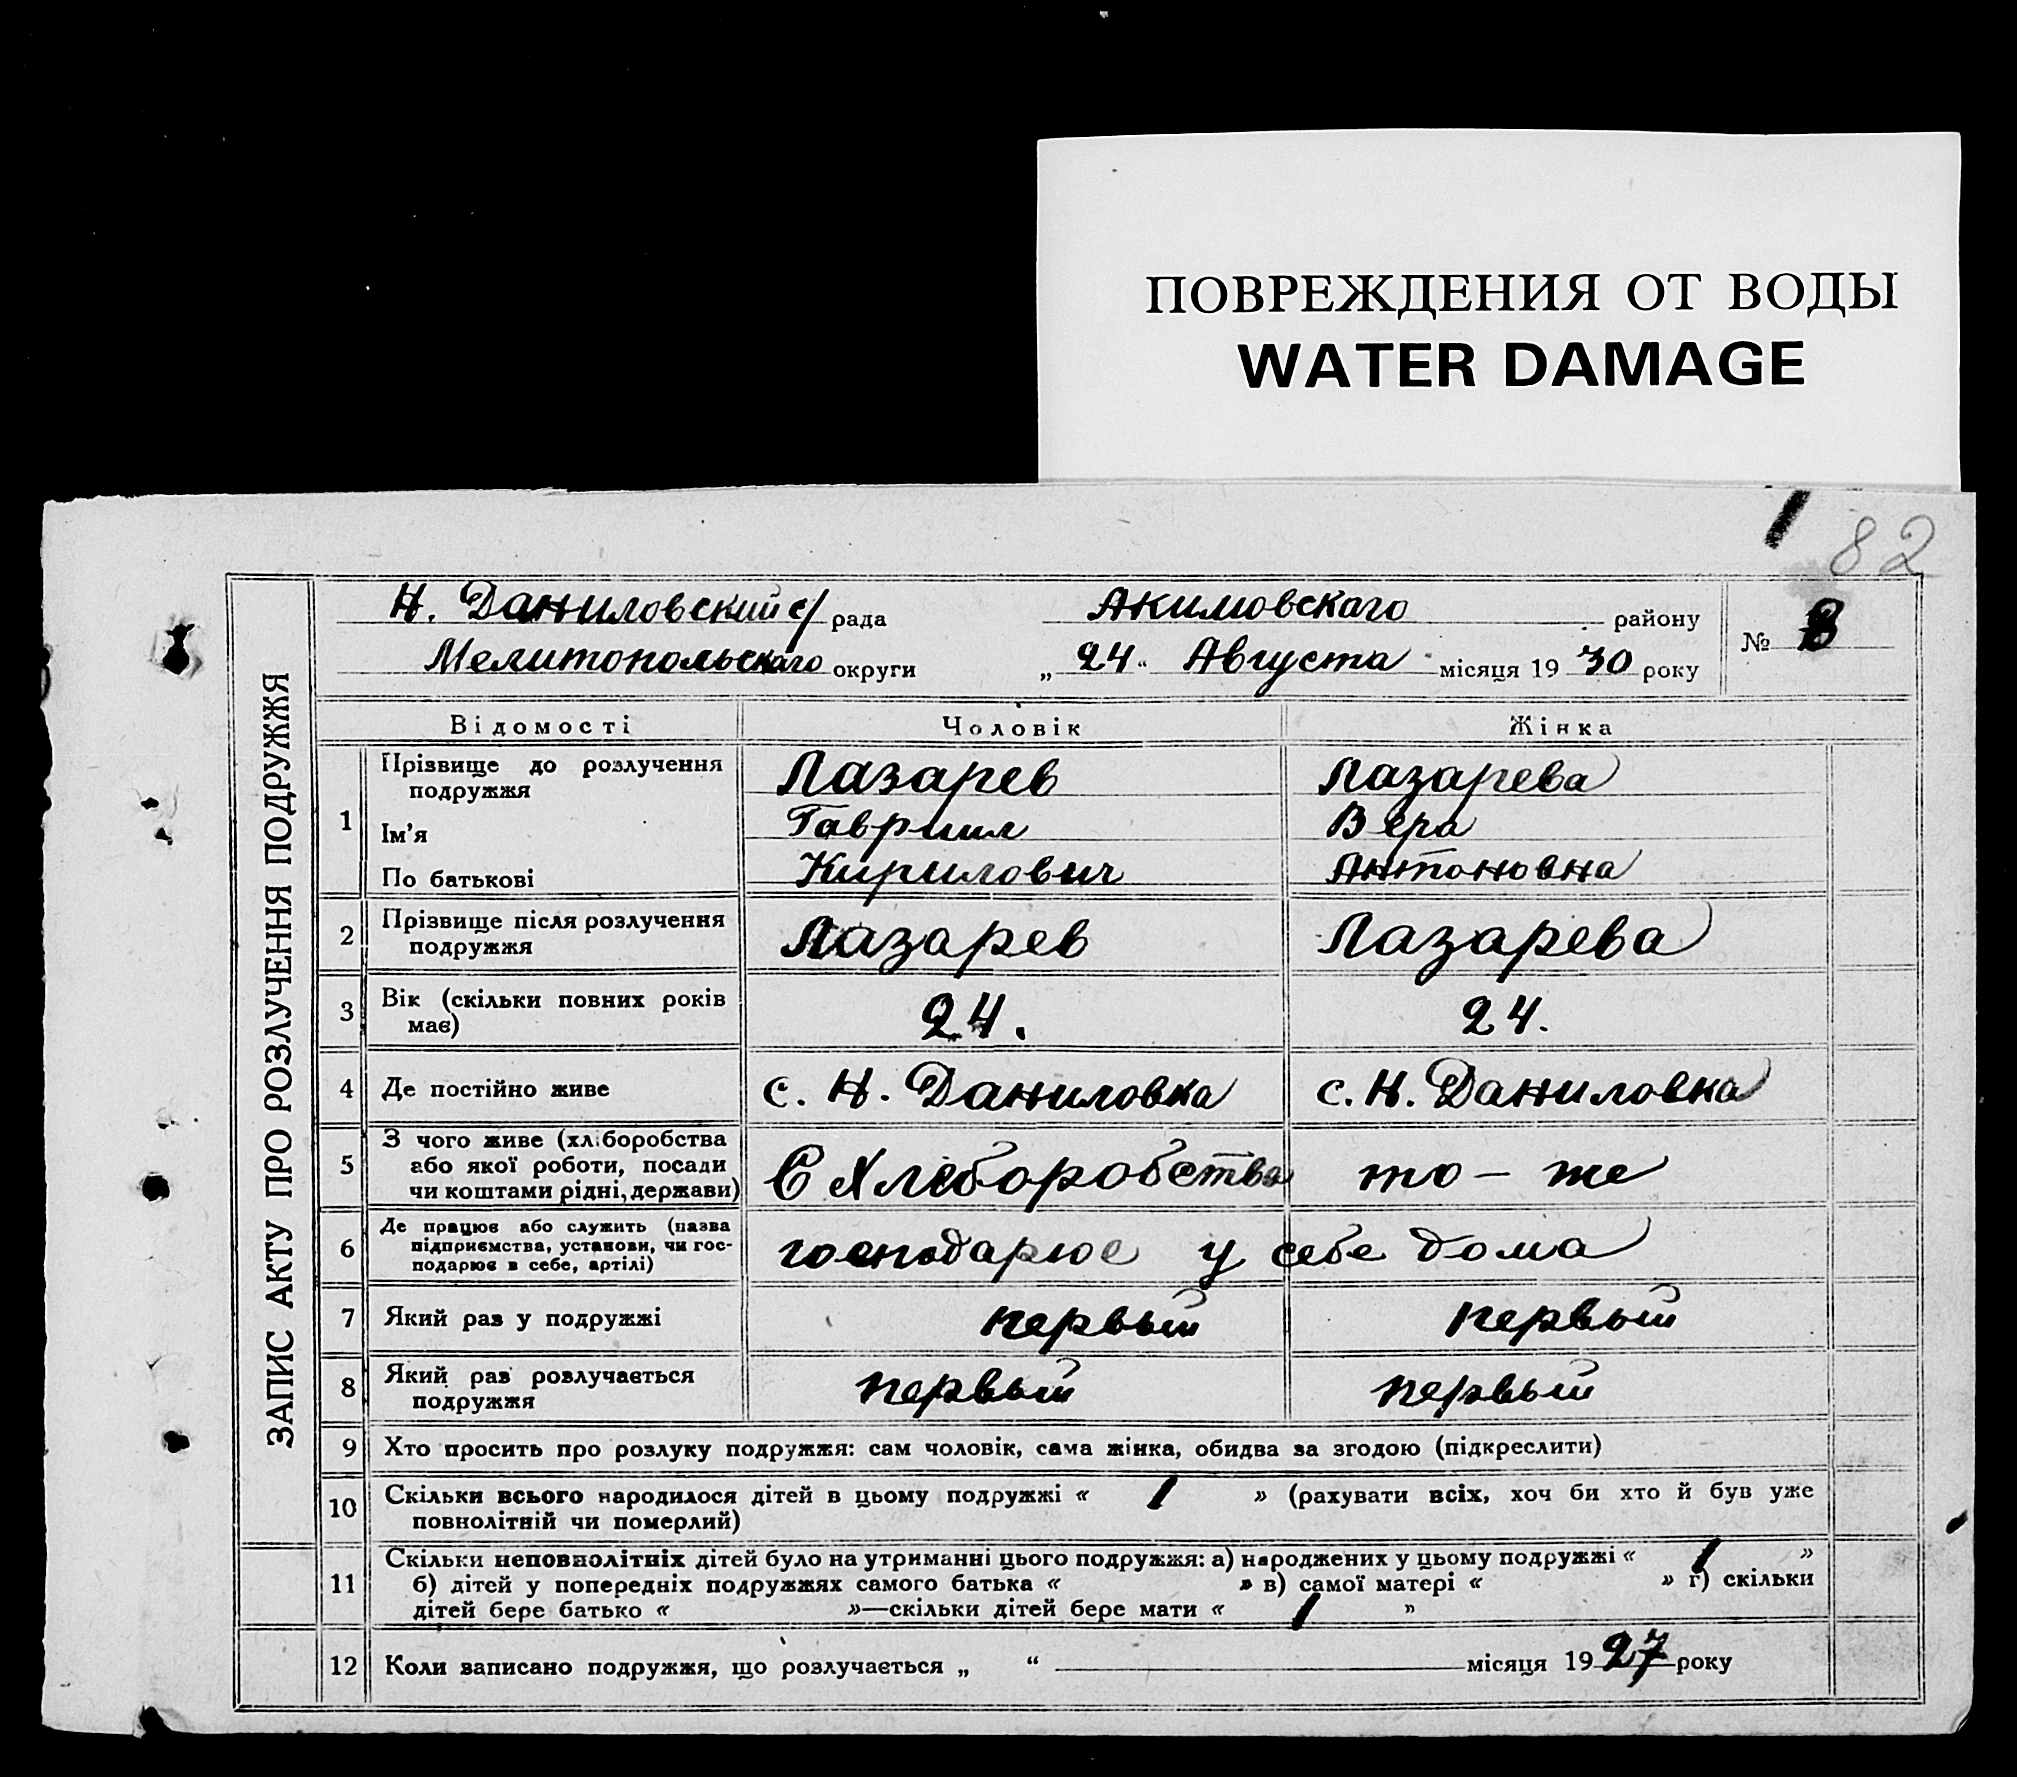 ПОВРЕЖДЕНИЯ ОТ ВОДЫ
WATER DAMAGE
82
ЗАПИС АКТУ ПРО РОЗЛУЧЕННЯ ПОДРУЖЖЯ
Н. Даниловский с/ рада Акимовскаго району
№ 8
Мелитопольскаго округи „ 24 “ Августа місяця 19 30 року
Відомості Чоловік Жінка
1
Прізвище до розлучення подружжя Лазарев Лазарева
Ім’я Гавриил Вера
По батькові Кирилович Антоновна
2 Прізвище після розлучення подружжя Лазарев Лазарева
3 Вік (скільки повних років має) 24. 24.
4 Де постійно живе с. Н. Даниловка с. Н. Даниловка
5 З чого живе (хліборобства
або якої роботи, посади
чи коштами рідні, держави) С Хлеборобства то – же
6 Де працює або служить (назва
підприємства, установи, чи гос-
подарює в себе, артілі) господарює у себе дома
7 Який раз у подружжі первый первый
8 Який раз розлучається подружжя первый первый
9 Хто просить про розлуку подружжя: сам чоловік, сама жінка, обидва за згодою (підкреслити)
10 Скільки всього народилося дітей в цьому подружжі « 1 » (рахувати всіх, хоч би хто й був уже
повнолітній чи померлий)
11 Скільки неповнолітніх дітей було на утриманні цього подружжя: а) народжених у цьому подружжі « 1 »
б) дітей у попередніх подружжях самого батька « » в) самої матері « » г) скільки
дітей бере батько « »—скільки дітей бере мати « 1 »
12 Коли записано подружжя, що розлучається „ “ місяця 19 27 року